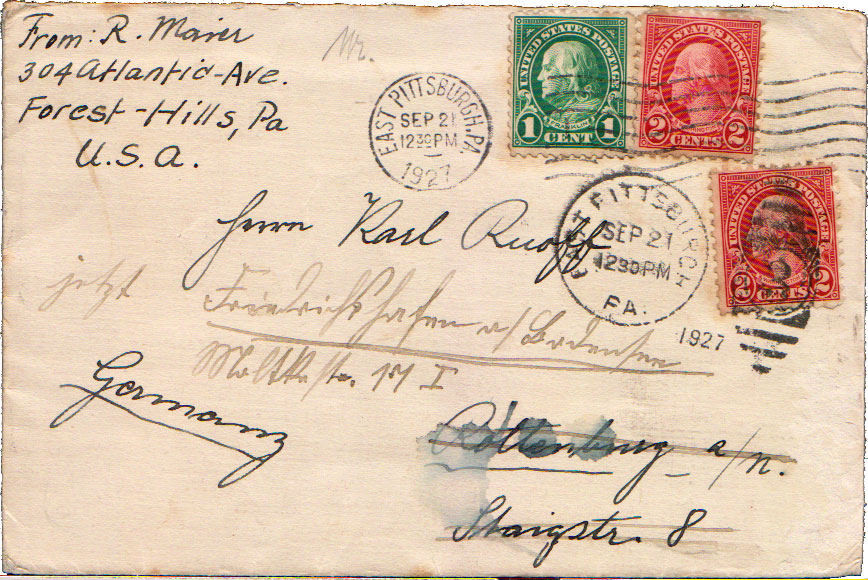 From: R. Maier
304 Atlantic-Ave.
Forest-Hills, Pa
U.S.A.
Nr.
EAST PITTSBURGH, PA.
SEP 21
1230 PM
1927
UNITED STATES POSTAGE
FRANKLIN
1 CENT 1
UNITED STATES POSTAGE
2 CENTS 2
EAST PITTSBURGH
SEP 21
1230 PM
PA.
1927
UNITED STATES POSTAGE
2 CENTS 2
Herrn Karl Ruoff
jetzt Friedrichshafen a/Bodensee
Moltkestr.
Germany
Rottenburg a/N.
Staigstr. 8